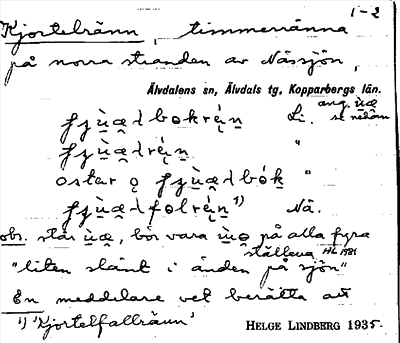 1-2
Kjortelränn, timmerränna
på norra stranden av Nässjön,
Älvdalens sn, Älvdals tg, Kopparbergs län.
ang. ù̠æ̠
se nedan
Li.
"
ostar "
Nä.
obs. står ù̠æ̠, bör vara på alla fyra
ställena HL 1981
"liten slänt i änden på sjön"
En meddelare vet berätta att
1) 'Kjortelfallränn'
HELGE LINDBERG 1935.